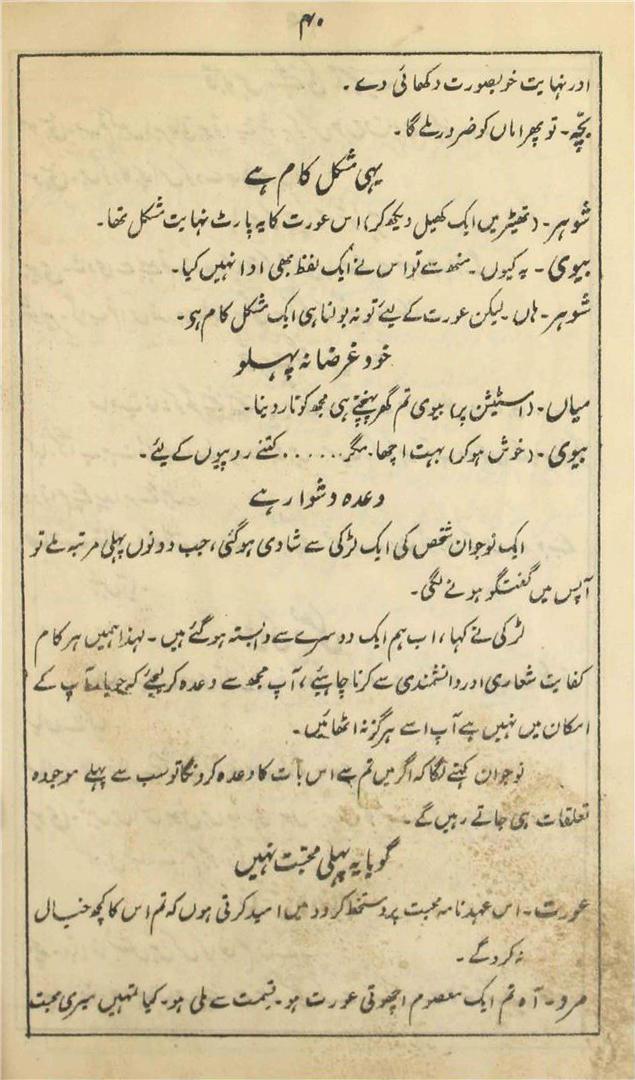 ۴۰
اور نہایت خوبصورت دکھائی دے۔
بچّہ۔ تو پھر اماں کو ضرور ملے گا۔
یہی مشکل کام ہے
شوہر۔ (تھیٹر میں ایک کھیل دیکھ کر) اس عورت کا یہ پارٹ نہایت مشکل تھا۔
بیوی۔ یہ کیوں۔ منھ سے تو اس نے ایک لفظ بھی ادا نہیں کیا۔
شوہر۔ ہاں۔ لیکن عورت کے لیئے تو نہ بولنا ہی ایک مشکل کام ہو۔
خود غرضانہ پہلو
میاں۔ (اسٹیشن پر) بیوی تم گھر پہنچتے ہی مجھ کو تار دینا۔
بیوی۔ (خوش ہو کر) بہت اچھا۔ مگر...... کتنے روپیوں کے لیئے۔
وعدہ دشوار ہے
ایک نوجوان شخص کی ایک لڑکی سے شادی ہو گئی، جب دونوں پہلی مرتبہ ملے تو
آپس میں گفتگو ہونے لگی۔
لڑکی نے کہا، اب ہم ایک دوسرے سے وابستہ ہو گئے ہیں۔ لہذا ہمیں ہر کام
کفایت شعاری اور دانشمندی سے کرنا چاہیئے، آپ مجھ سے وعدہ کر لیجئے کہ جو بات آپ کے
امکان میں نہیں ہے آپ اسے ہرگز نہ اٹھائیں۔
نوجوان کہنے لگا کہ اگر میں تم سے اس بات کا وعدہ کرونگا تو سب سے پہلے موجودہ
تعلقات ہی جاتے رہیں گے۔
گویا یہ پہلی محبت نہیں
عورت۔ اس عہد نامہ محبت پر دستخط کر دو میں امید کرتی ہوں کہ تم اس کا کچھ خیال
نہ کرو گے۔
مرد۔ آہ تم ایک معصوم اچھوتی عورت ہو۔ قسمت سے ملی ہو۔ کیا تمہیں میری محبت